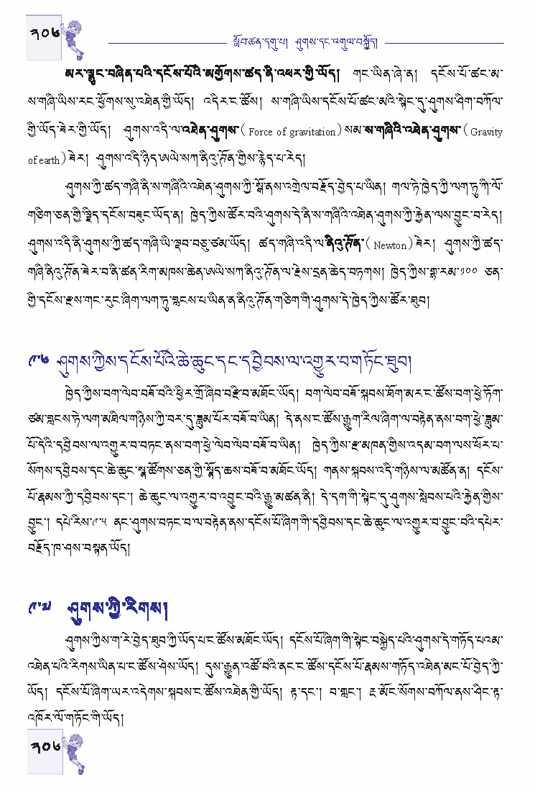 ༢༠༦
སློབ་ཚན་དགུ་པ། ཤུགས་དང་འགུལ་བསྐྱོད།
མར་ལྷུང་བཞིན་པའི་དངོས་པོའི་མགྱོགས་ཚད་ནི་འཕར་གྱི་ཡོད། གང་ཡིན་ཞེ་ན། དངོས་པོ་ཚང་མ་
ས་གཞི་ཡིས་རང་ཕྱོགས་སུ་འཐེན་གྱི་ཡོད། འདིར་ང་ཚོས། ས་གཞི་ཡིས་དངོས་པོ་ཚང་མའི་སྟེང་དུ་ཤུགས་ཤིག་བཀོལ་
གྱི་ཡོད་ཟེར་གྱི་ཡོད། ཤུགས་འདི་ལ་འཐེན་ཤུགས་(Force of gravitation)སམ་ས་གཞིའི་འཐེན་ཤུགས་(Gravity
of earth)ཟེར། ཤུགས་འདི་ཉིད་ཨལེ་སཀ་ནིའུ་ཊོན་གྱིས་རྙེད་པ་རེད།
ཤུགས་ཀྱི་ཚད་གཞི་ནི་ས་གཞིའི་འཐེན་ཤུགས་ཀྱི་སྒོ་ནས་འགྲེལ་བརྗོད་བྱེད་པ་ཡིན། གལ་ཏེ་ཁྱེད་ཀྱི་ལག་ཏུ་ཀི་ལོ་
གཅིག་ཅན་གྱི་ལྗིད་དངོས་བཟུང་ཡོད་ན། ཁྱེད་ཀྱིས་ཚོར་བའི་ཤུགས་དེ་ནི་ས་གཞིའི་འཐེན་ཤུགས་ཀྱི་རྐྱེན་ལས་བྱུང་བ་རེད།
ཤུགས་འདི་ནི་ཤུགས་ཀྱི་ཚད་གཞི་ཡི་ལྡབ་བཅུ་ཙམ་ཡོད། ཚད་གཞི་འདི་ལ་ནིའུ་ཊོན་(Newton)ཟེར། ཤུགས་ཀྱི་ཚད་
གཞི་ནིའུ་ཊོན་ཟེར་བ་ནི་ཚན་རིག་མཁས་ཆེན་ཨལེ་སཀ་ནིའུ་ཊོན་ལ་རྗེས་དྲན་ཆེད་བཏགས། ཁྱེད་ཀྱིས་གྷ་རམ་༡༠༠ ཅན་
གྱི་དངོས་རྫས་གང་རུང་ཞིག་ལག་ཏུ་བླངས་པ་ཡིན་ན་ནིའུ་ཊོན་གཅིག་གི་ཤུགས་དེ་ཁྱེད་ཀྱིས་ཚོར་ཐུབ།
༩་༦ ཤུགས་ཀྱིས་དངོས་པོའི་ཆེ་ཆུང་དང་དབྱིབས་ལ་འགྱུར་བ་གཏོང་ཐུབ།
ཁྱེད་ཀྱིས་བག་ལེབ་བཟོ་བའི་ཕྱིར་གྲོ་ཞིབ་བརྫི་བ་མཐོང་ཡོད། བག་ལེབ་བཟོ་སྐབས་ཐོག་མར་ང་ཚོས་བག་ཕྱེ་ཏོག་
ཙམ་བླངས་ཏེ་ལག་མཐིལ་གཉིས་ཀྱི་བར་དུ་ཟླུམ་པོར་བཟོ་བ་ཡིན། དེ་ནས་ང་ཚོས་རྒྱུག་རིལ་ཞིག་ལ་བརྟེན་ནས་བག་ཕྱེ་ཟླུམ་
པོ་དེའི་དབྱིབས་ལ་འགྱུར་བ་བཏང་ནས་བག་ཕྱེ་ལེབ་ལེབ་བཟོ་བ་ཡིན། ཁྱེད་ཀྱིས་རྫ་མཁན་གྱིས་འདམ་བག་ལས་ཕོར་པ་
སོགས་དབྱིབས་དང་ཆེ་ཆུང་སྣ་ཚོགས་ཅན་གྱི་སྣོད་ཆས་བཟོ་བ་མཐོང་ཡོད། གནས་སྐབས་འདི་གཉིས་ལ་མཚོན་ན། དངོས་
པོ་རྣམས་ཀྱི་དབྱིབས་དང༌། ཆེ་ཆུང་ལ་འགྱུར་བ་འབྱུང་བའི་རྒྱུ་མཚན་ནི། དེ་དག་གི་སྟེང་དུ་ཤུགས་སླེབས་པའི་རྐྱེན་གྱིས་
བྱུང༌། དཔེ་རིས་༩་༥ ནང་ཤུགས་བཏང་བ་ལ་བརྟེན་ནས་དངོས་པོ་ཞིག་གི་དབྱིབས་དང་ཆེ་ཆུང་ལ་འགྱུར་བ་བྱུང་བའི་དཔེར་
བརྗོད་ཁ་ཤས་བསྟན་ཡོད།
༩་༧ ཤུགས་ཀྱི་རིགས།
ཤུགས་ཀྱིས་ག་རེ་བྱེད་ཐུབ་ཀྱི་ཡོད་པ་ང་ཚོས་མཐོང་ཡོད། དངོས་པོ་ཞིག་གི་སྟེང་བསྐྱེད་པའི་ཤུགས་དེ་གཏོད་པའམ་
འཐེན་པའི་རིགས་ཡིན་པ་ང་ཚོས་ཤེས་ཡོད། དུས་རྒྱུན་འཚོ་བའི་ནང་ང་ཚོས་དངོས་པོ་རྣམས་གཏོད་འཐེན་མང་པོ་བྱེད་ཀྱི་
ཡོད། དངོས་པོ་ཞིག་ཡར་འདེགས་སྐབས་ང་ཚོས་འཐེན་གྱི་ཡོད། རྟ་དང༌། བ་གླང༌། རྔ་མོང་སོགས་བཀོལ་ནས་ཤིང་རྟ་
འཁོར་ལོ་གཏོང་གི་ཡོད།
༢༠༦